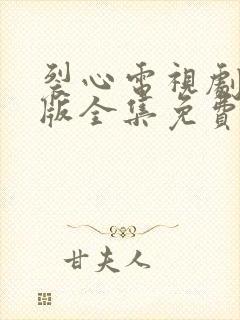 裂心電視劇
版全集免費
甘夫人